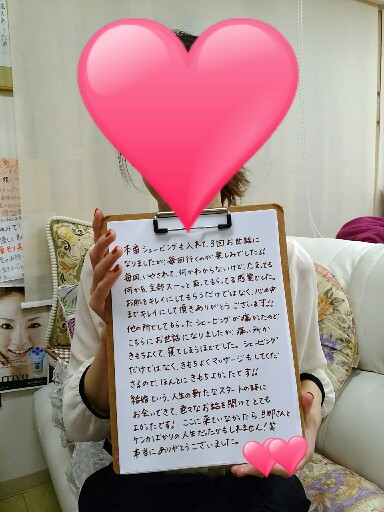 本番シェービングも入れて、3回お世話に
なりましたが、毎回行くのが楽しみでした!!
毎回、いやされて、何かわからないけど、たまってる
何かを、全部スーッと直してもらってる感覚でした。
お肌をキレイにしてもらうだけではなく、心の中
までキレイにして頂きありがとうございます!!
他の所でしてもらったシェービングが痛かったので
こちらにお世話になりましたが、痛い所か
きもちよくて、寝てしまうほどでした。シェービング
だけではなく、きもちよくマッサージもしてくだ
さるので、ほんとにきもちよかったです!!
結婚という、人生の新たなスタートの時に
お会いできて、色々なお話を聞けてとても
よかったです! ここに来ていなかったら旦那さんと
ケンカばかりの人生だったかもしれません!笑
本当にありがとうございました。